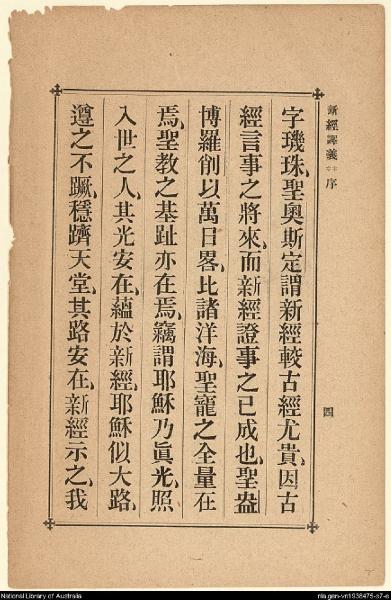 新經譯義 序
四
字璣珠、聖奧斯定謂新經較古經尤貴、因古
經言事之將來、而新經證事之已成也、聖盎
博羅削以萬日畧、比諸洋海、聖寵之全量在
焉、聖教之基趾亦在焉、竊謂耶穌乃眞光、照
入世之人、其光安在、蘊於新經、耶穌似大路、
遵之不蹶、穩躋天堂、其路安在、新經示之、我
National Library of Australia
nla.gen-vn1938475-s7-e